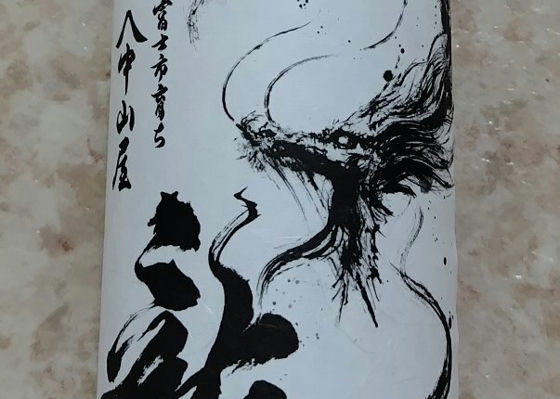 富士市育ち
八中山屋
龍